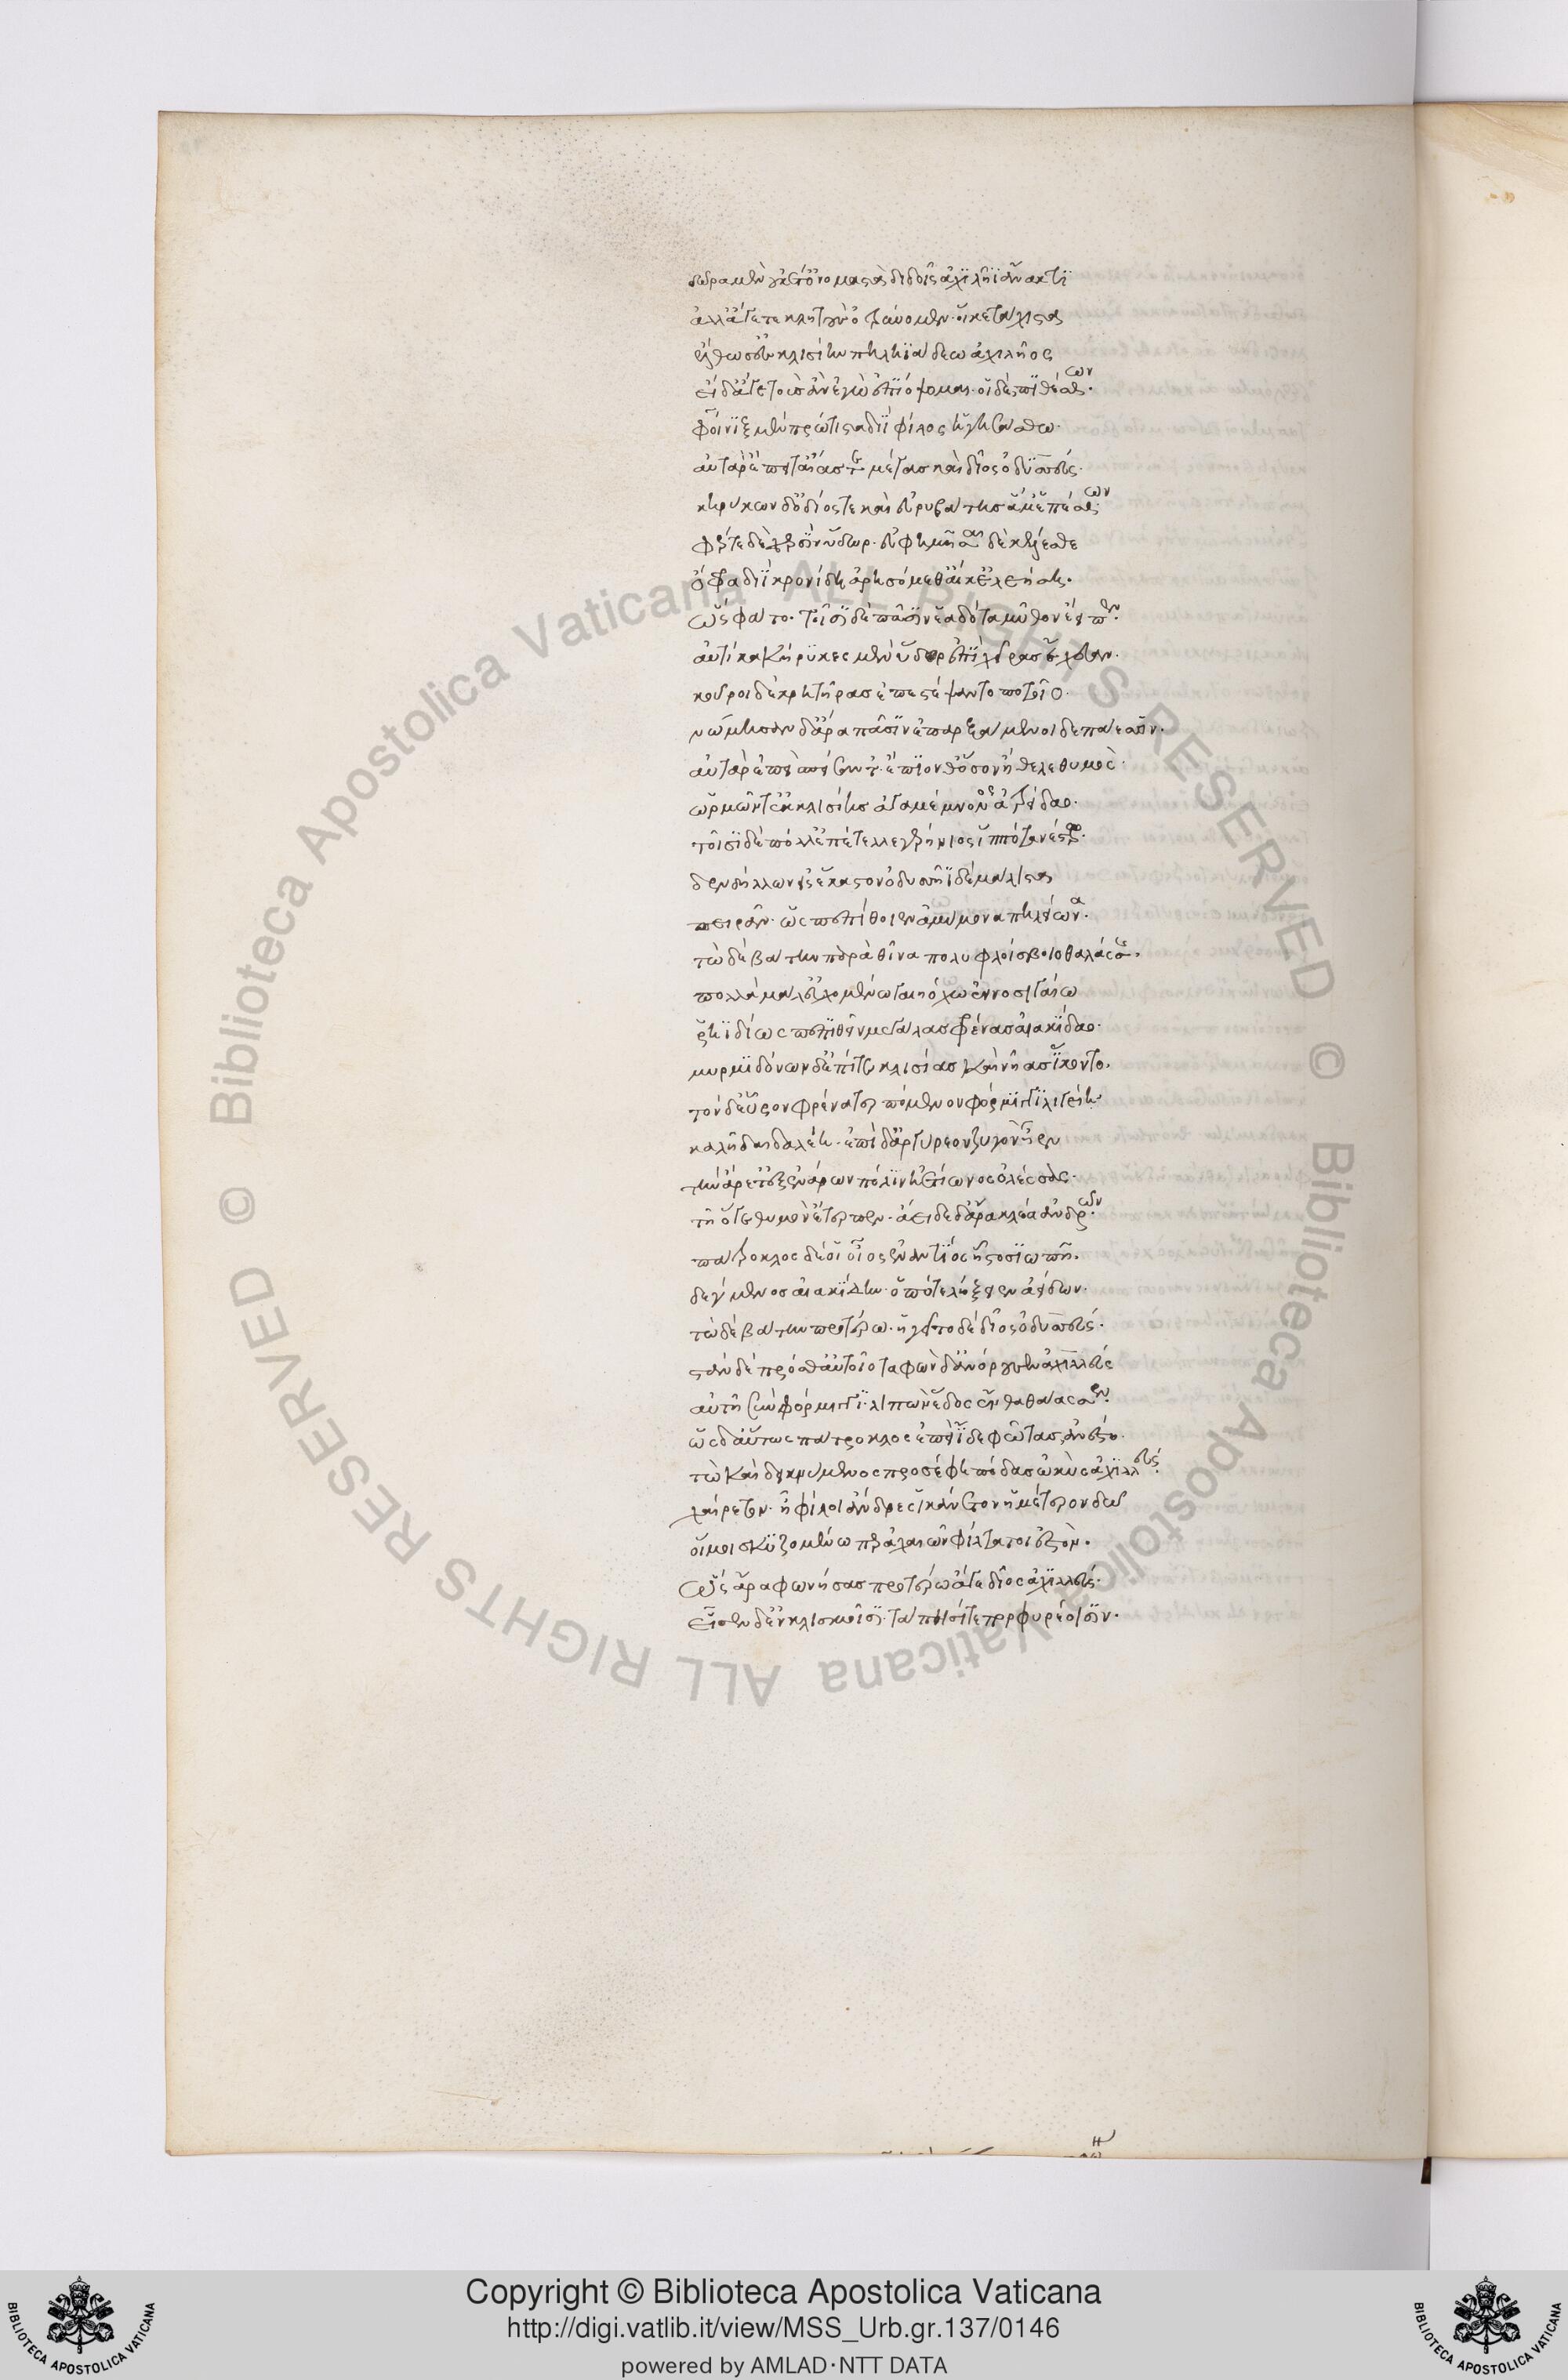 δῶρα μὲν οὐκέτ' ὀνοστὰ διδοῖς ἀχιλῆϊ ἄνακτι
ἀλλ' ἄγετε κλητοὺς ὀτρύνομεν· οἵ κε τάχιστα
ἔλθωσ' ἐν κλισίην πηληϊάδεω ἀχιλῆος
εἰ δ' ἄγε τοὺς ἂν ἐγὼ ἐπιόψομαι· οἱ δὲ πιθέσθων·
φοῖνιξ μὲν πρώτιστα διῒ φίλος ἡγησάσθω·
αὐτὰρ ἔπειτ' αἴας τε μέγας καὶ δῖος ὀδυσσεύς·
κηρύκων δ' ὀδίος τε καὶ εὐρυβάτης ἅμ' ἑπέσθων·
φέρτε δὲ χερσὶν ὕδωρ· εὐφημῆσαι δὲ κέλεσθε
ὄφρα διῒ κρονίδῃ ἀρησόμεθ' αἴ κ' ἐλεήσῃ.
ὣς φάτο· τοῖσι δὲ πᾶσιν ἑαδότα μῦθον ἔειπεν·
αὐτίκα κήρυκες μὲν ὕδωρ ἐπὶ χεῖρας ἔχευαν·
κοῦροι δὲ κρητῆρας ἐπεστέψαντο ποτοῖο·
νώμησαν δ' ἄρα πᾶσιν ἐπαρξάμενοι δεπάεσσιν·
αὐτὰρ ἐπεὶ σπεῖσάν τ' ἔπιόν θ' ὅσον ἤθελε θυμός·
ὡρμῶντ' ἐκ κλισίης ἀγαμέμνονος ἀτρείδαο·
τοῖσι δὲ πόλλ' ἐπέτελλε γερήνιος ἱππότα νέστωρ·
δενδίλλων ἐς ἕκαστον ὀδυσσῆϊ δὲ μάλιστα
πειρᾶν· ὡς πεπίθοιεν ἀμύμονα πηλείωνα·
τὼ δὲ βάτην παρὰ θῖνα πολυφλοίσβοιο θαλάσσης·
πολλὰ μάλ' εὐχομένω γαιηόχῳ ἐννοσιγαίῳ
ῥηϊδίως πεπιθεῖν μεγάλας φρένας αἰακίδαο·
μυρμιδόνων δ' ἐπί τε κλισίας καὶ νῆας ἱκέσθην·
τὸν δ' εὗρον φρένα τερπόμενον φόρμιγγι λιγείῃ·
καλῇ δαιδαλέῃ· ἐπὶ δ' ἀργύρεον ζυγὸν ἦεν
τὴν ἄρετ' ἐξ ἐνάρων πόλιν ἠετίωνος ὀλέσσας·
τῇ ὅγε θυμὸν ἔτερπεν· ἄειδε δ' ἄρα κλέα ἀνδρῶν·
πάτροκλος δέ οἱ οἶος ἐναντίος ἧστο σιωπῇ·
δέγμενος αἰακίδην· ὁπότε λήξειεν ἀείδων·
τὼ δὲ βάτην προτέρω· ἡγεῖτο δὲ δῖος ὀδυσσεύς·
στὰν δὲ πρόσθ' αὐτοῖο ταφὼν δ' ἀνόρουσεν ἀχιλλεύς
αὐτῇ σὺν φόρμιγγι· λιπὼν ἕδος ἔνθα θάασσεν·
ὣς δ' αὔτως πάτροκλος ἐπεὶ ἴδε φῶτας ἀνέστη·
τὼ καὶ δεικνύμενος προσέφη πόδας ὠκὺς ἀχιλλεύς·
χαίρετον· ἦ φίλοι ἄνδρες ἱκάνετον ἡμέτερον δῶ
οἵ μοι σκυζομένῳ περ ἀχαιῶν φίλτατοι ἐστόν·
ὣς ἄρα φωνήσας προτέρω ἄγε δῖος ἀχιλλεύς·
εἷσεν δ' ἐν κλισμοῖσι· τάπησί τε πορφυρέοισιν·
Copyright © Biblioteca Apostolica Vaticana
http://digi.vatlib.it/view/MSS_Urb.gr.137/0146
powered by AMLAD·NTT DATA